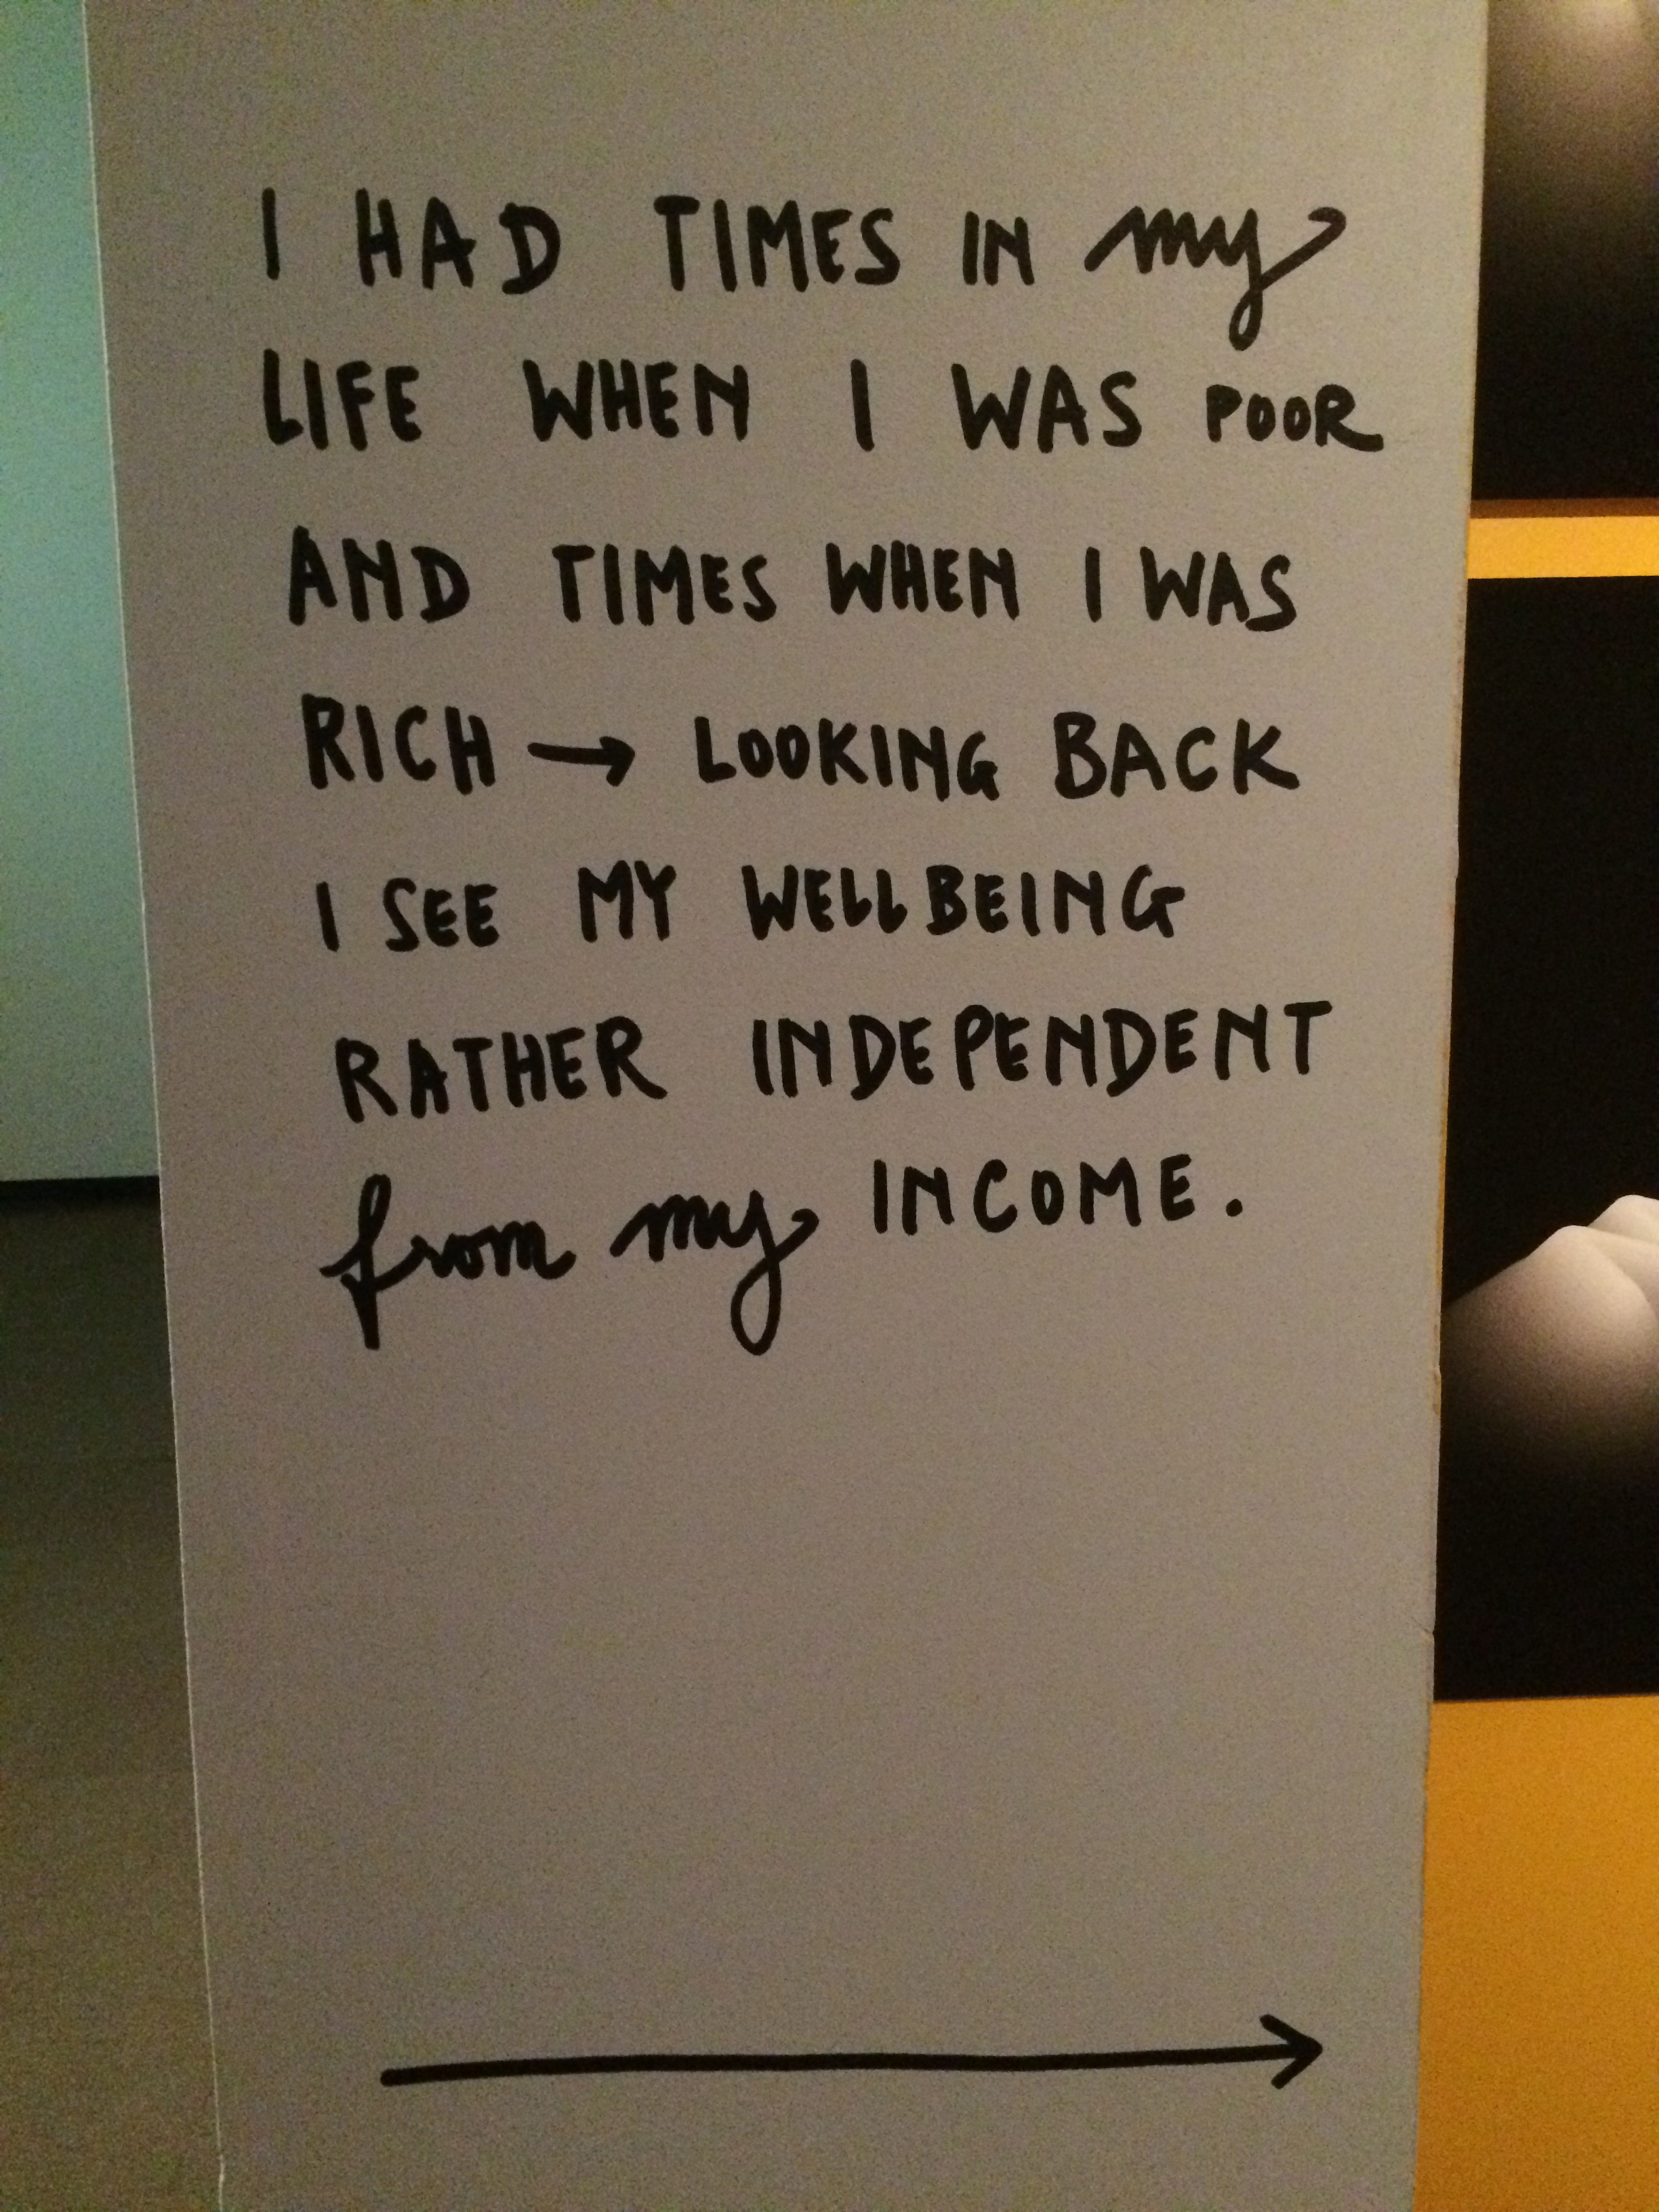 I HAD TIMES IN my
LIFE WHEN I WAS POOR
AND TIMES WHEN I WAS
RICH → LOOKING BACK
I SEE MY WELLBEING
RATHER INDEPENDENT
from my INCOME.